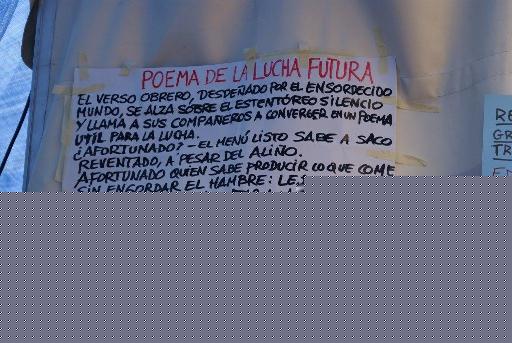 POEMA DE LA LUCHA FUTURA
EL VERSO OBRERO, DESDEÑADO POR EL ENSORDECIDO
MUNDO, SE ALZA SOBRE EL ESTENTÓREO SILENCIO
Y LLAMA A SUS COMPAÑEROS A CONVERGER EN UN POEMA
UTIL PARA LA LUCHA.
¿AFORTUNADO? - EL MENÚ LISTO SABE A SACO
REVENTADO, A PESAR DEL ALIÑO.
AFORTUNADO QUIEN SABE PRODUCIR LO QUE COME
SIN ENGORDAR EL HAMBRE:
RE
GR
TR